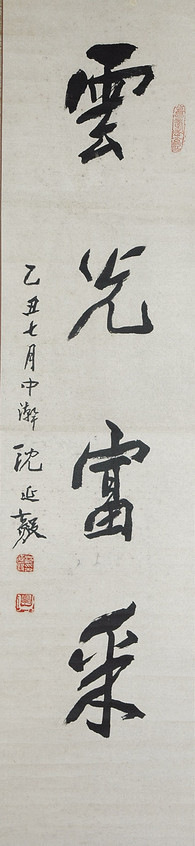 雲光富采
乙丑七月中澣沈延毅